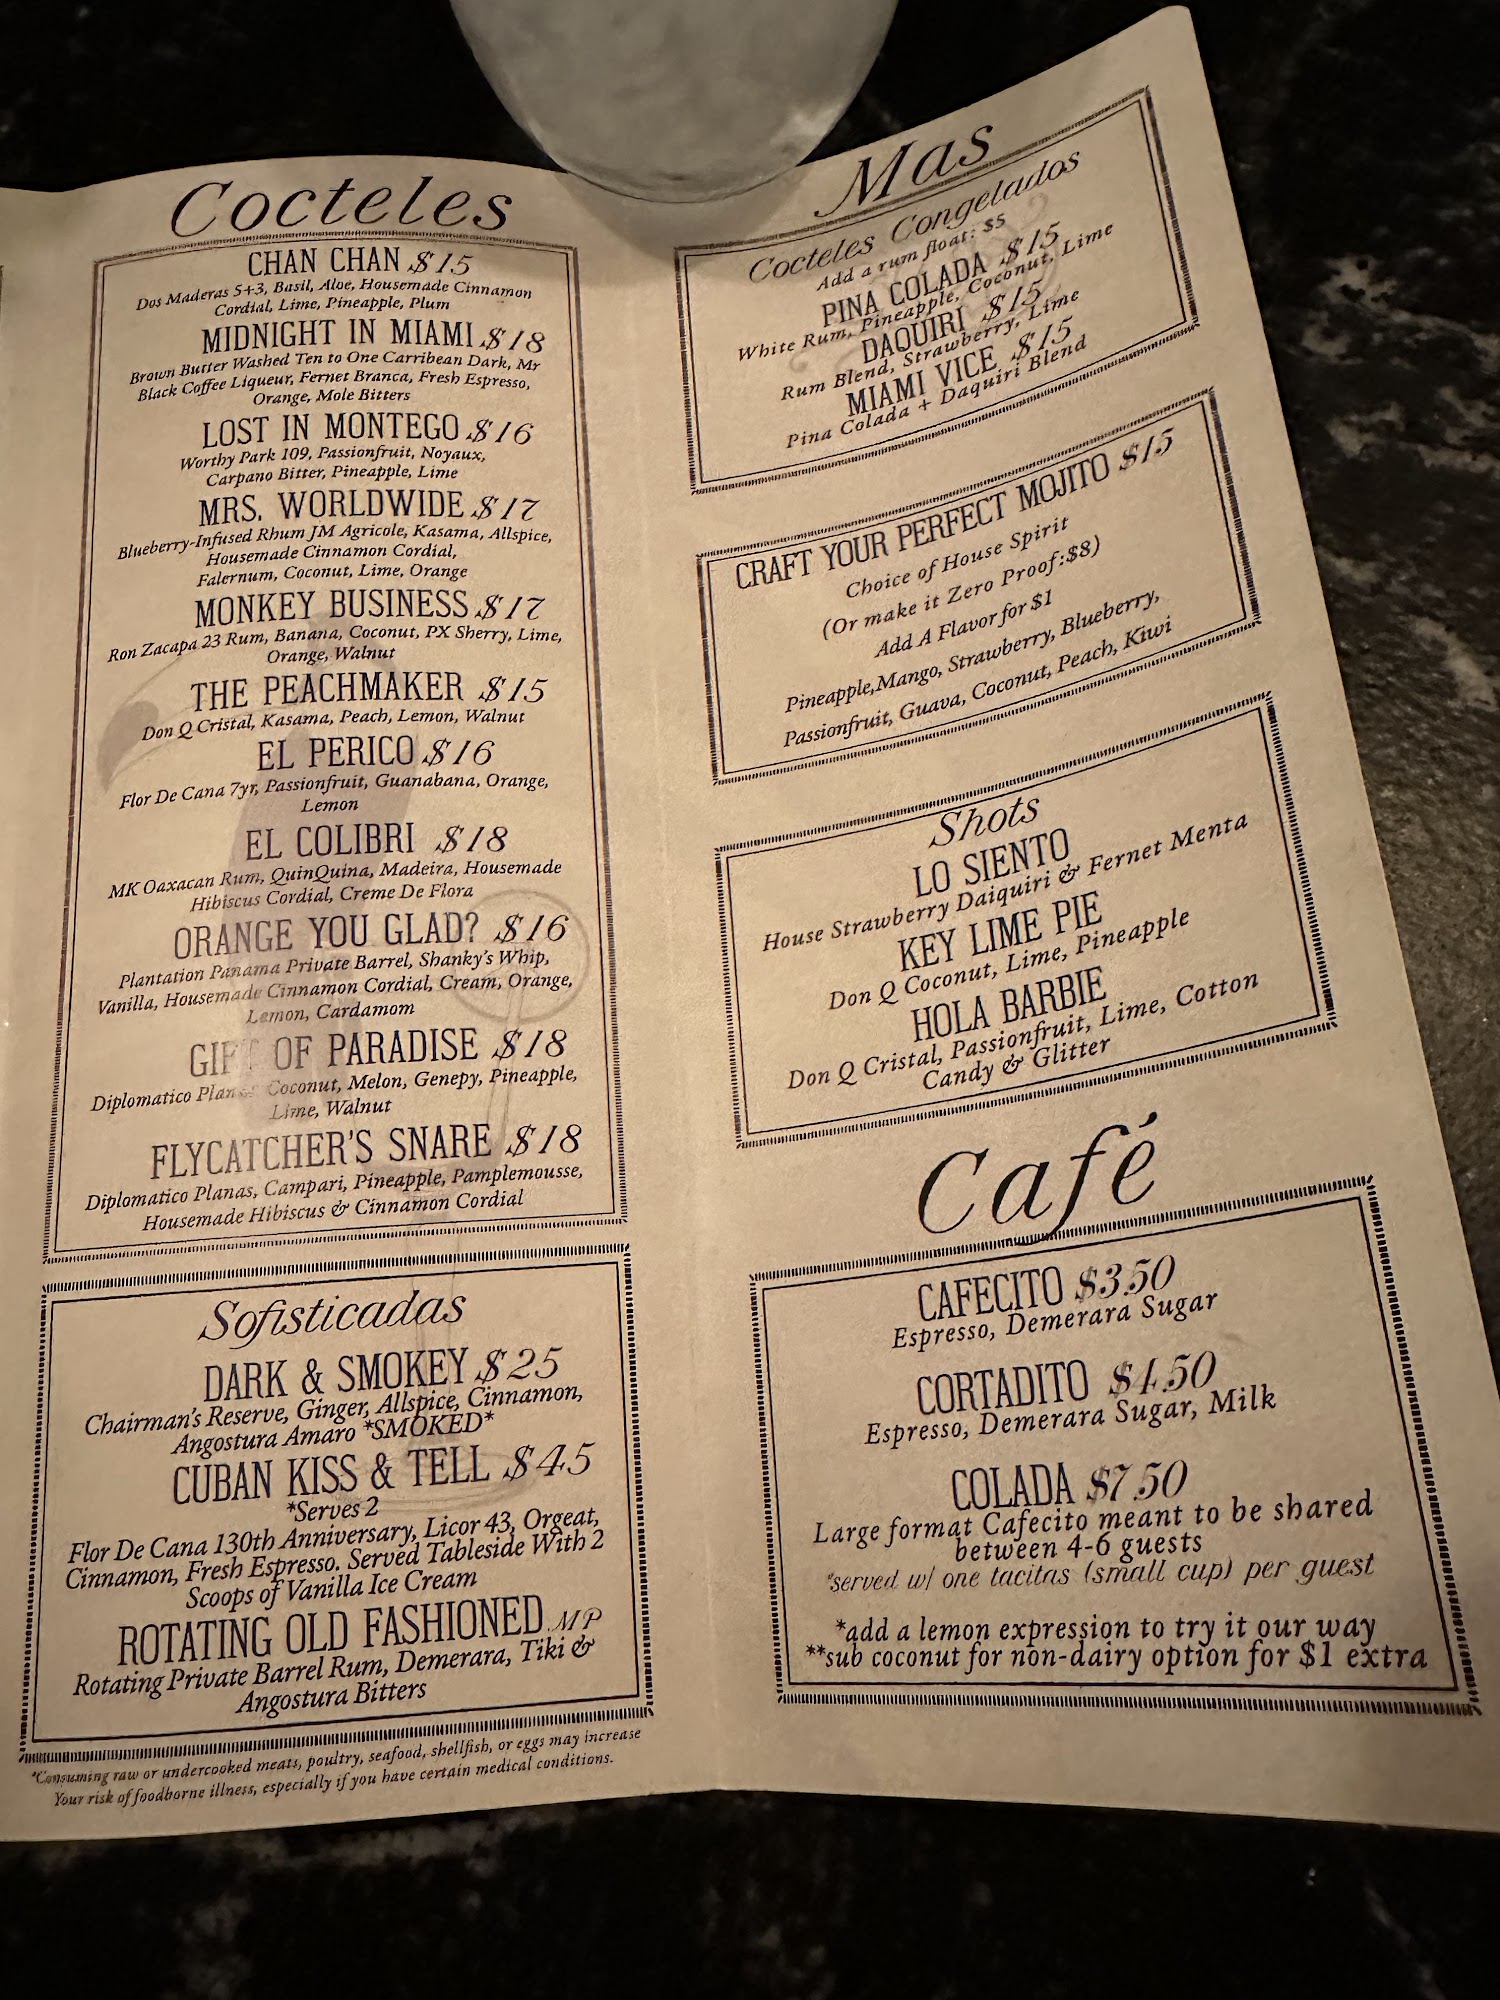 Cocteles
CHAN CHAN $15
Dos Maderas 5+3, Basil, Aloe, Housemade Cinnamon
Cordial, Lime, Pineapple, Plum
MIDNIGHT IN MIAMI $18
Brown Butter Washed Ten to One Carribean Dark, Mr
Black Coffee Liqueur, Fernet Branca, Fresh Espresso,
Orange, Mole Bitters
LOST IN MONTEGO $16
Worthy Park 109, Passionfruit, Noyaux,
Carpano Bitter, Pineapple, Lime
MRS. WORLDWIDE $17
Blueberry-Infused Rhum JM Agricole, Kasama, Allspice,
Housemade Cinnamon Cordial,
Falernum, Coconut, Lime, Orange
MONKEY BUSINESS $17
Ron Zacapa 23 Rum, Banana, Coconut, PX Sherry, Lime,
Orange, Walnut
THE PEACHMAKER $15
Don Q Cristal, Kasama, Peach, Lemon, Walnut
EL PERICO $16
Flor De Cana 7yr, Passionfruit, Guanabana, Orange,
Lemon
EL COLIBRI $18
MK Oaxacan Rum, QuinQuina, Madeira, Housemade
Hibiscus Cordial, Creme De Flora
ORANGE YOU GLAD? $16
Plantation Panama Private Barrel, Shanky's Whip,
Vanilla, Housemade Cinnamon Cordial, Cream, Orange,
Lemon, Cardamom
GIFT OF PARADISE $18
Diplomatico Planas, Coconut, Melon, Genepy, Pineapple,
Lime, Walnut
FLYCATCHER'S SNARE $18
Diplomatico Planas, Campari, Pineapple, Pamplemousse,
Housemade Hibiscus & Cinnamon Cordial
Sofisticadas
DARK & SMOKEY $25
Chairman's Reserve, Ginger, Allspice, Cinnamon,
Angostura Amaro *SMOKED*
CUBAN KISS & TELL $45
*Serves 2
Flor De Cana 130th Anniversary, Licor 43, Orgeat,
Cinnamon, Fresh Espresso. Served Tableside With 2
Scoops of Vanilla Ice Cream
ROTATING OLD FASHIONED MP
Rotating Private Barrel Rum, Demerara, Tiki &
Angostura Bitters
*Consuming raw or undercooked meats, poultry, seafood, shellfish, or eggs may increase
Your risk of foodborne illness, especially if you have certain medical conditions.
Mas
Cocteles Congelados
Add a rum float: $5
PINA COLADA $15
White Rum, Pineapple, Coconut, Lime
DAQUIRI $15
Rum Blend, Strawberry, Lime
MIAMI VICE $15
Pina Colada + Daquiri Blend
CRAFT YOUR PERFECT MOJITO $15
Choice of House Spirit
(Or make it Zero Proof:$8)
Add A Flavor for $1
Pineapple,Mango, Strawberry, Blueberry,
Passionfruit, Guava, Coconut, Peach, Kiwi
Shots
LO SIENTO
House Strawberry Daiquiri & Fernet Menta
KEY LIME PIE
Don Q Coconut, Lime, Pineapple
HOLA BARBIE
Don Q Cristal, Passionfruit, Lime, Cotton
Candy & Glitter
Café
CAFECITO $3.50
Espresso, Demerara Sugar
CORTADITO $4.50
Espresso, Demerara Sugar, Milk
COLADA $7.50
Large format Cafecito meant to be shared
between 4-6 guests
*served w/ one tacitas (small cup) per guest
*add a lemon expression to try it our way
**sub coconut for non-dairy option for $1 extra